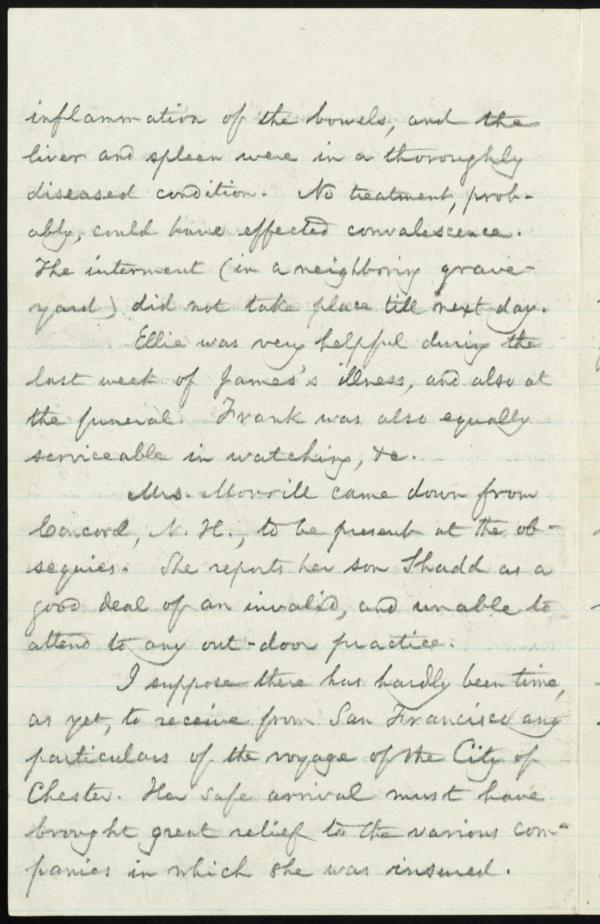 inflammation of the bowels, and the
liver and spleen were in a thoroughly
diseased condition. No treatment, prob-
ably, could have effected convalescence.
The interment (in a neighboring grave-
yard) did not take place till next day.
Ellie was very helpful during the
last week of James's illness, and also at
the funeral. Frank was also equally
serviceable in watching, &c.
Mrs. Morrill came down from
Concord, N. H., to be present at the ob-
sequies. She reports her son Shadd as a
good deal of an invalid, and unable to
attend to any out-door practice.
I suppose there has hardly been time,
as yet, to receive from San Francisco any
particulars of the voyage of the City of
Chester. Her safe arrival must have
brought great relief to the various com-
panies in which she was insured.